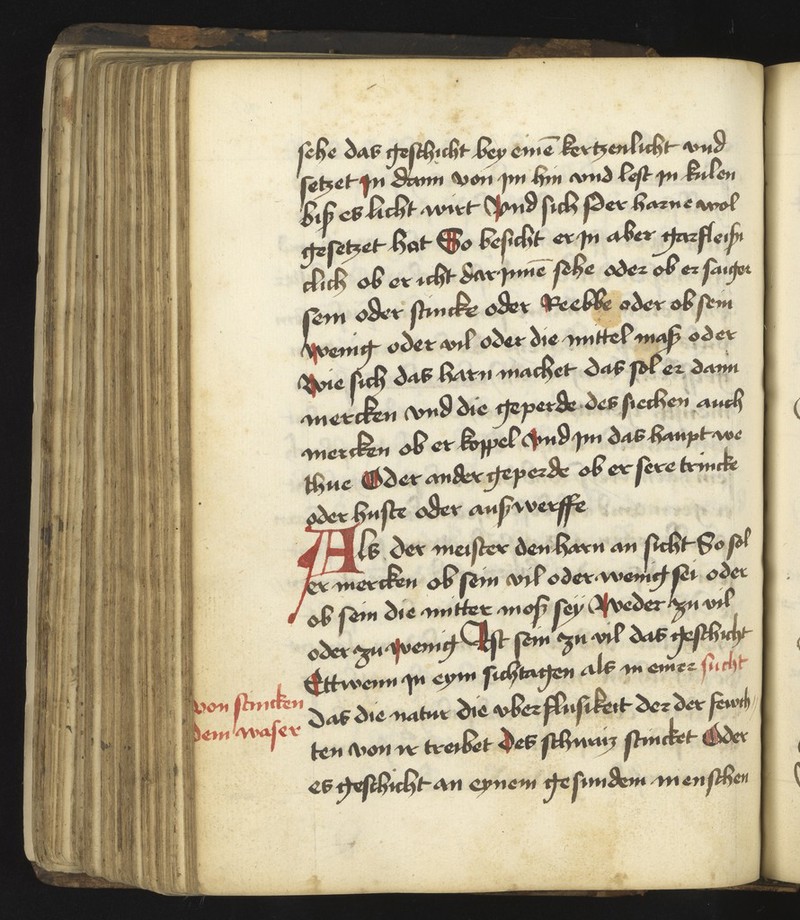 sehe das geschicht bey einē kertzenlicht vnd
setzet In dann von jm hin vnd lest jn kulen
biß es licht wirt Vnd sich der harne wol
gesetzet hat So besicht er jn aber garfleissi
clich ob er icht darjnnē sehe oder ob er saiger
sein oder stincke oder Reebbe oder ob sein
wenig oder vil oder die mittel maß oder
Wie sich das harn machet das sol er dann
mercken vnd die geperde des siechen auch
mercken ob er koppel Vnd jm das haupt we
thue Oder ander geperde ob er sere trincke
oder huste oder außwerffe
Als der meister den harn an sicht So sol
er mercken ob sein vil oder wenig sei oder
ob sein die mitter moß sey Weder zu vil
oder zu wenig Ist sein zu vil das geschicht
Ettwenn jn eym sichtagen als in einer sucht
von stincken
dem waser
das die natur die vberflusikeit der der fewch
ten von ir treibet Des schwaiz stincket Oder
es geschicht an eynem gesundem menschen